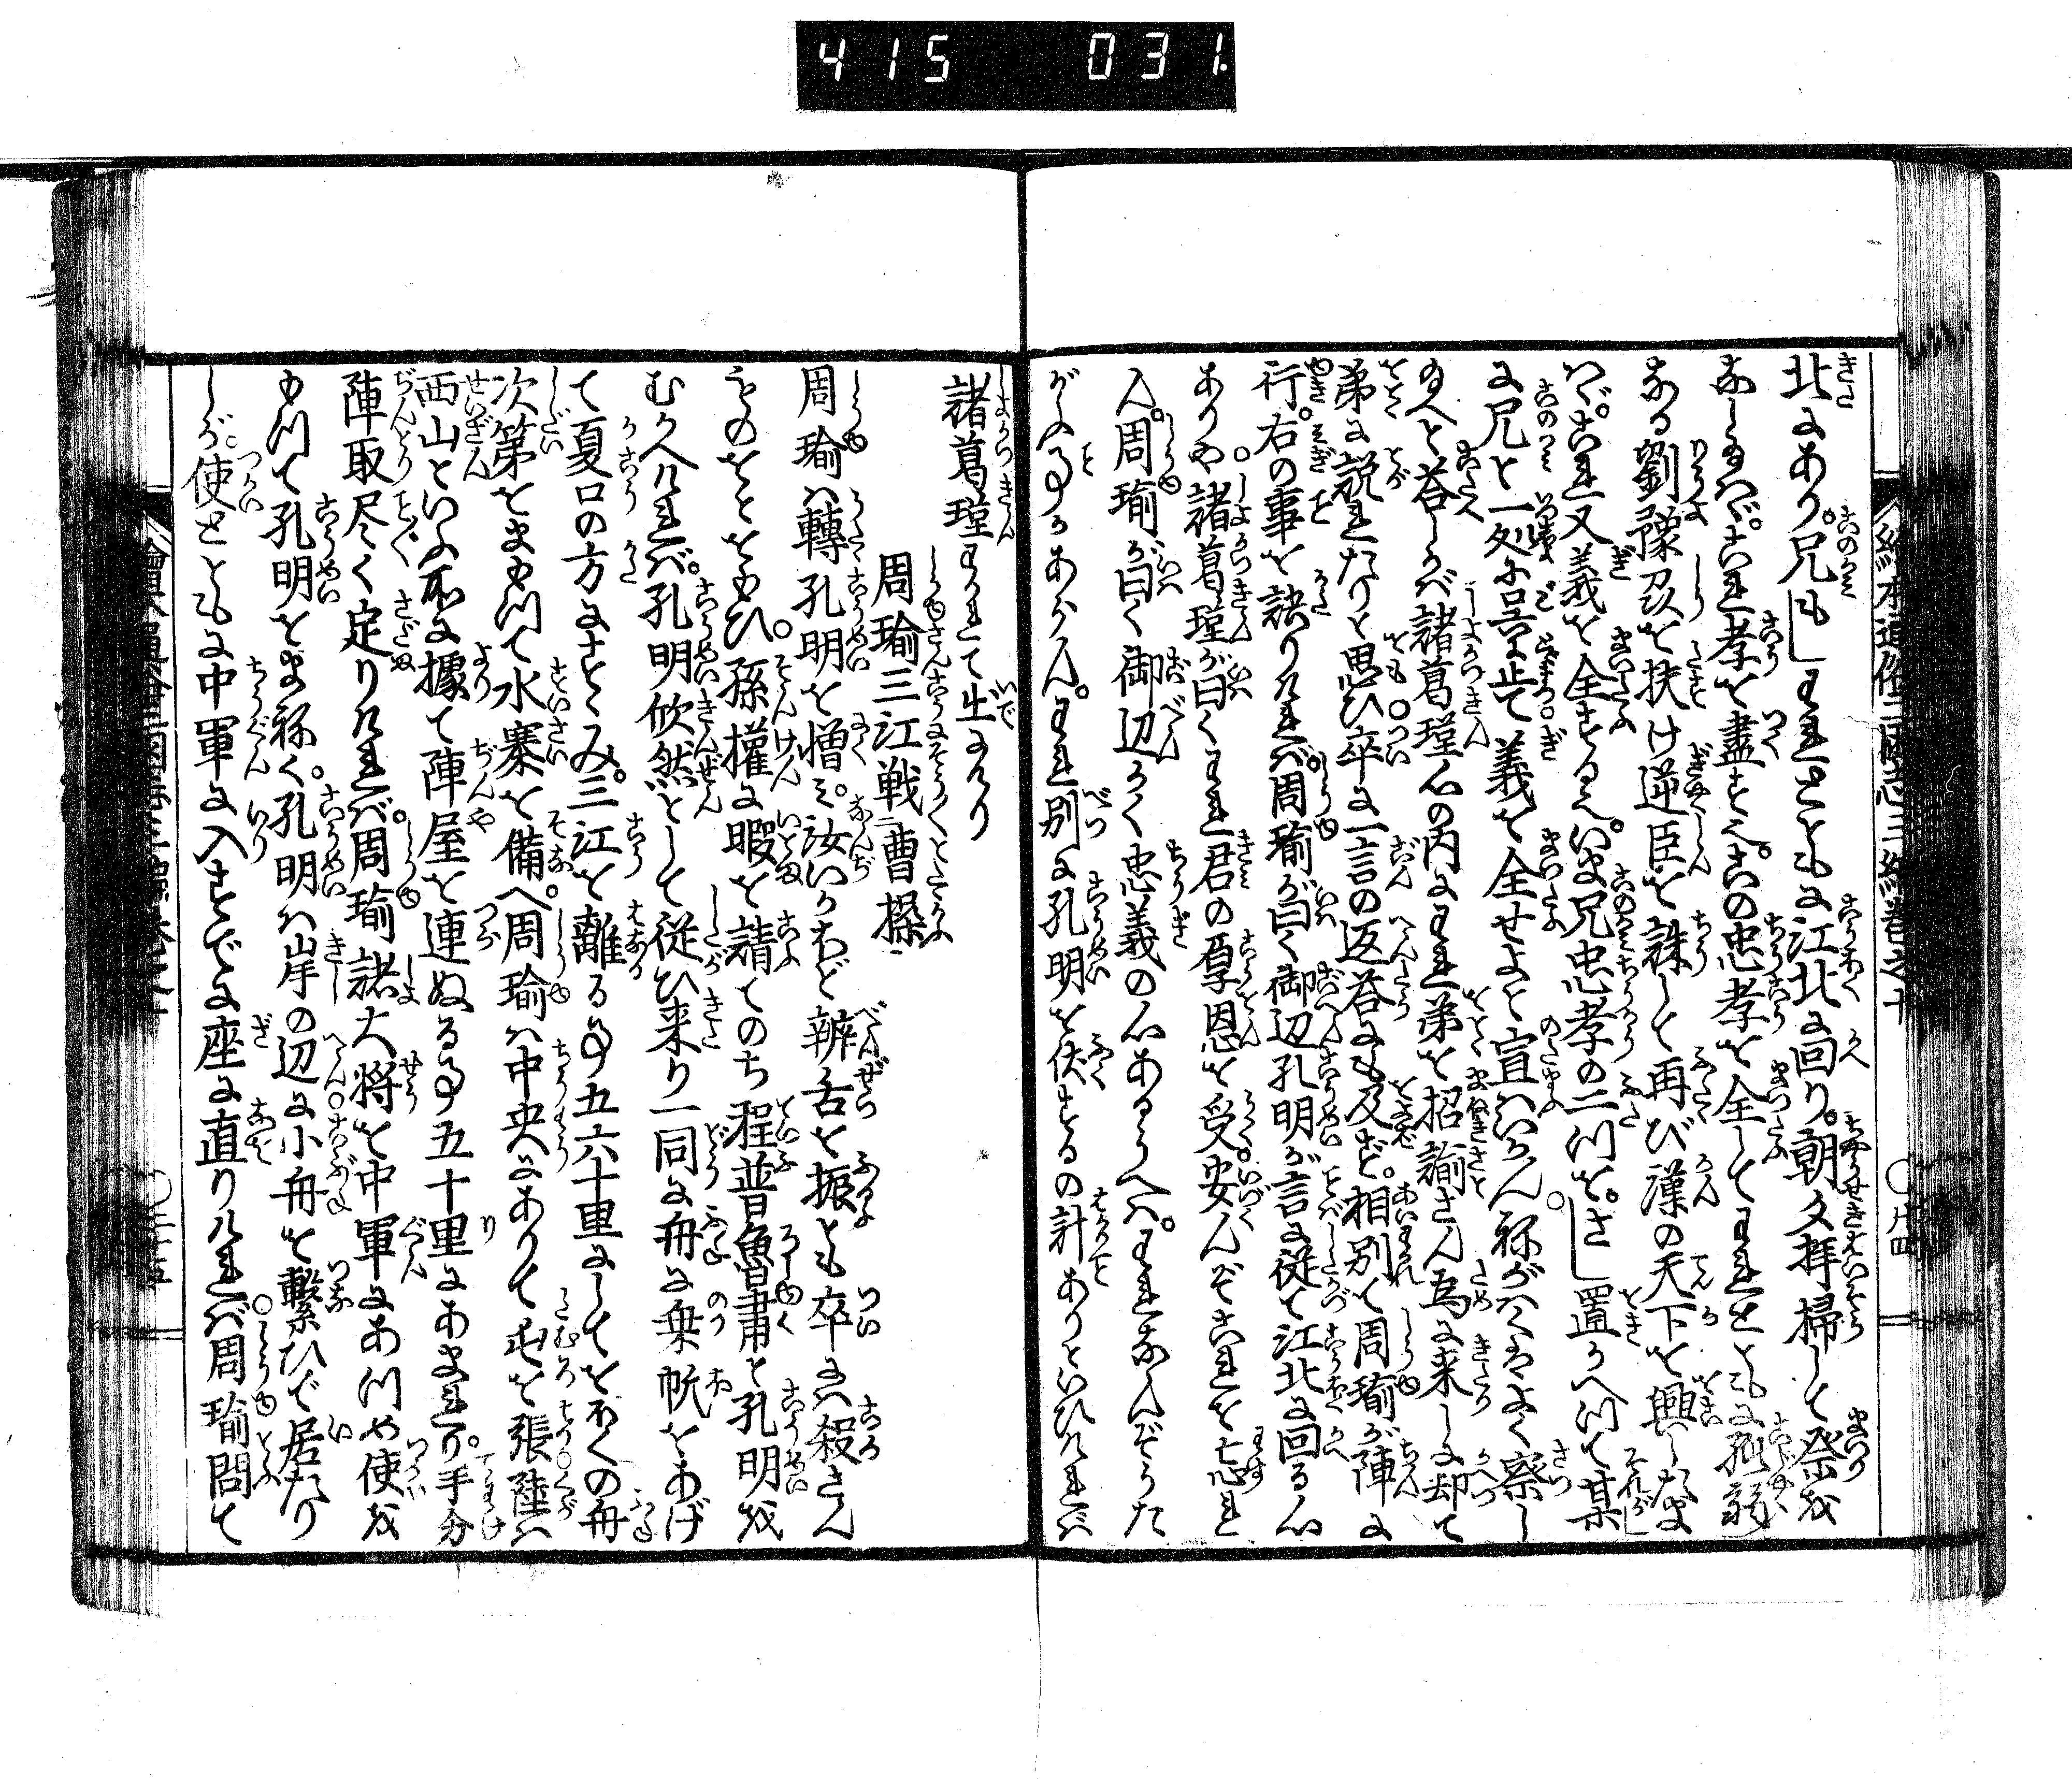 415 031.
北にあり。兄もしわれとともに江北に回り。朝夕拝掃して祭を
なし給へば。これ孝を盡すなり。この忠孝を全してわれとともに孤弱
なる劉豫州を扶け逆臣を誅して再び漢の天下を興したま
はゞ。これ又義を全するなり。いま兄忠孝の二つを。さし置かへつて某
に兄と一処に止て義を全せよと宣はいかん。ねがはくはよく察し
給へと答しかば諸葛瑾心の内にわれ弟を招諭さん為に来しに却て
弟に説れたりと思ひ卒に一言の返答にも及ず。相別て周瑜が陣に
行。右の事を訣りければ。周瑜が曰く御辺孔明が言に従て江北に回る心
ありや諸葛瑾が曰くわれ君の厚恩を受。安んぞこれを忘れ
ん。周瑜が曰く御辺かく忠義の心あるうへは。われなんぞうた
がふ事かあらん。われ別に孔明を伏するの計ありといひければ
諸葛瑾わかれて出にけり
周瑜三江戦曹操
周瑜は轉孔明を憎み。汝いかほど辨舌を振とも卒には殺さん
ものをとおもひ。孫權に暇を請てのち程普魯粛と孔明を
むかへければ。孔明欣然として従ひ来り一同に舟に乗帆をあげ
て夏口の方にすゝみ。三江を離る事五六十里にしておほくの舟
次第をまもつて水寨を備へ。周瑜は中央にありて屯を張陸は
西山といふ所に據て陣屋を連ぬる事五十里にあまれり。手分
陣取尽く定りければ。周瑜諸大将を中軍にあつめ使を
もつて孔明をまねく。孔明は岸の辺に小舟を繋ひで居たり
しが。使とともに中軍に入すでに座に直りければ。周瑜問て